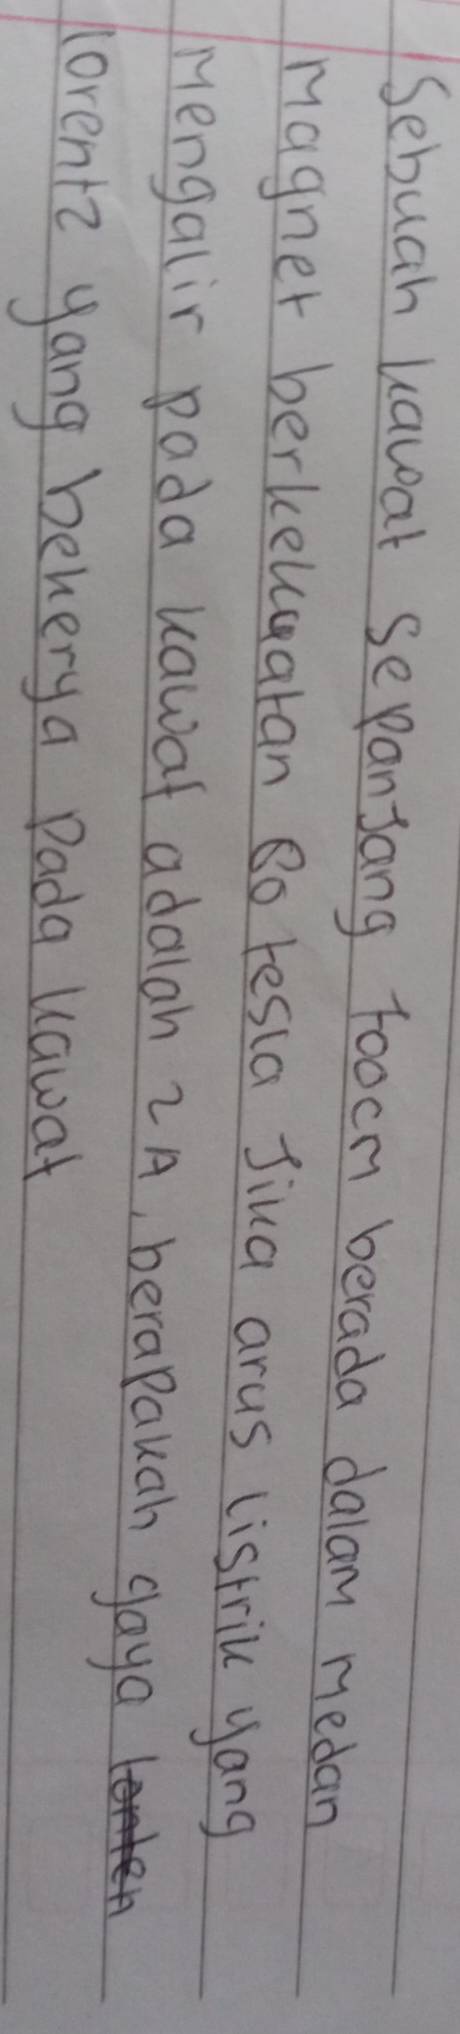 Sebuah kawat sepanjang 100cm berada dalam medan
Magnet berkekuatan 80 tesla Jika arus listrik yang
Mengalir pada kawat adalah 2A, berapakah gaya
lorentz yang bekerya pada kawat